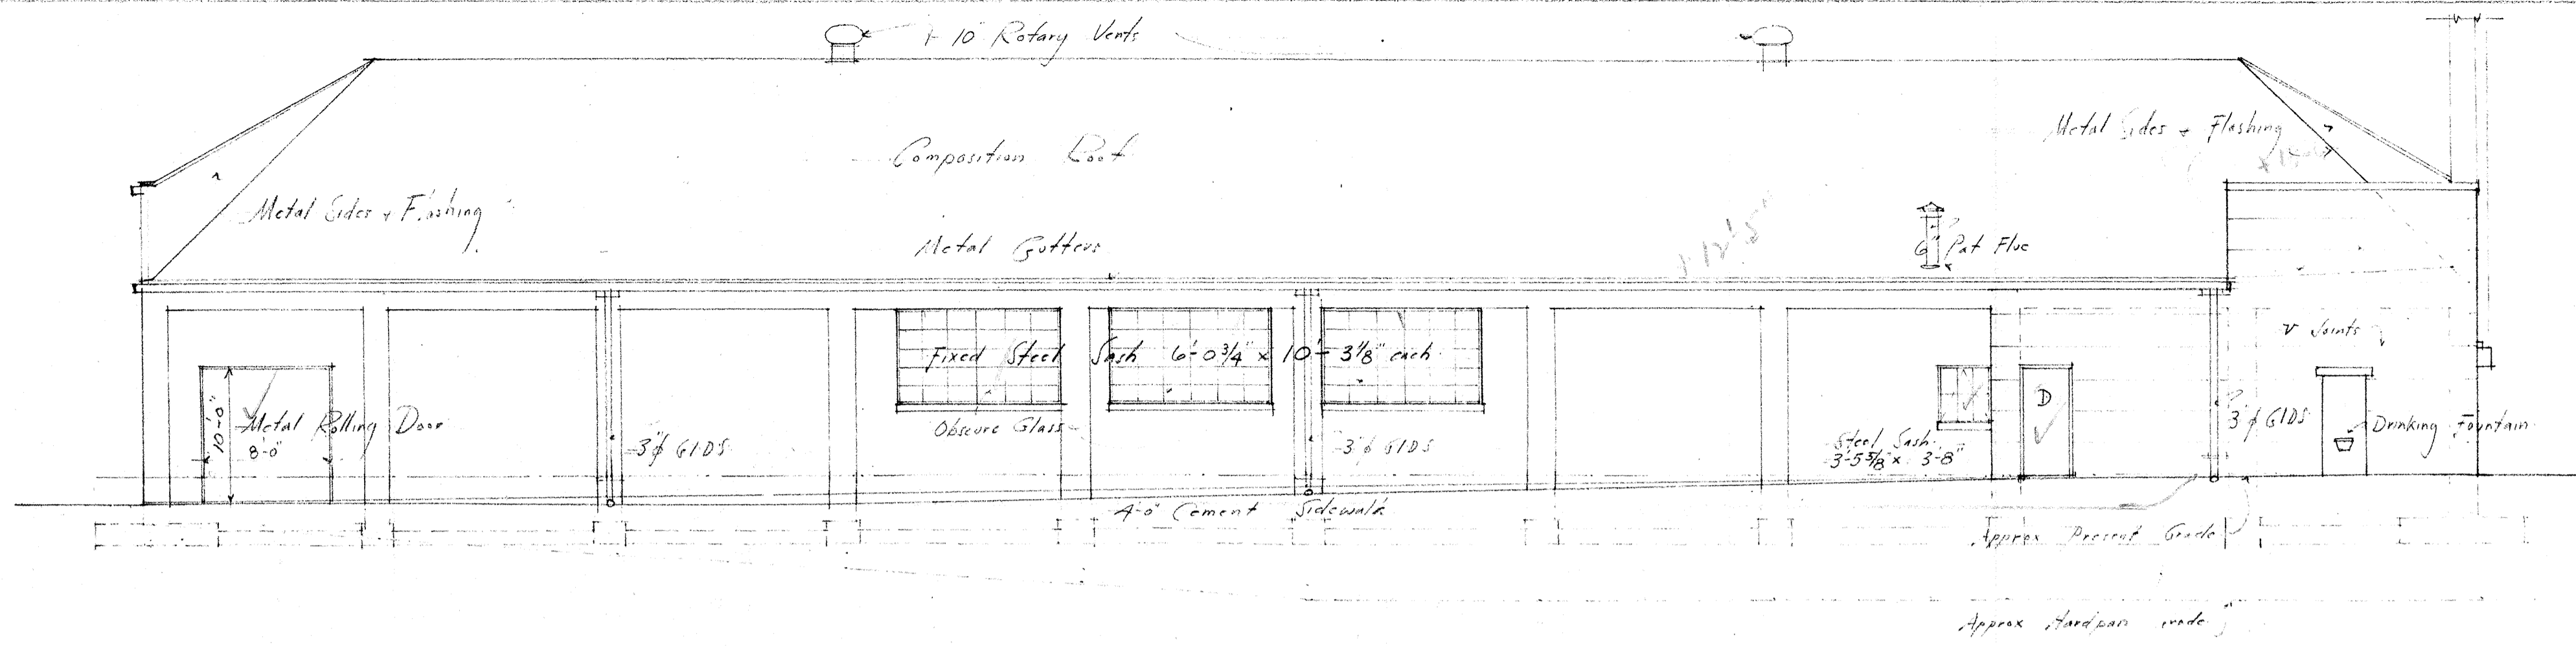 10" Rotary Vents
Composition Roof
Metal Sides + Flashing
Metal Sides + Flashing
Metal Gutters
12'-5"
6" Pat Flue
V Joints
Fixed Steel Sash 6'-0 3/4" x 10'-3 1/8" each
Obscure Glass
10'-0"
Metal Rolling Door
8'-0"
3"ϕ GIDS
3"ϕ GIDS
Steel Sash
3'-5 5/8" x 3'-8"
D
3"ϕ GIDS
Drinking Fountain
4'-0" Cement Sidewalk
Approx Present Grade
Approx Hardpan Grade